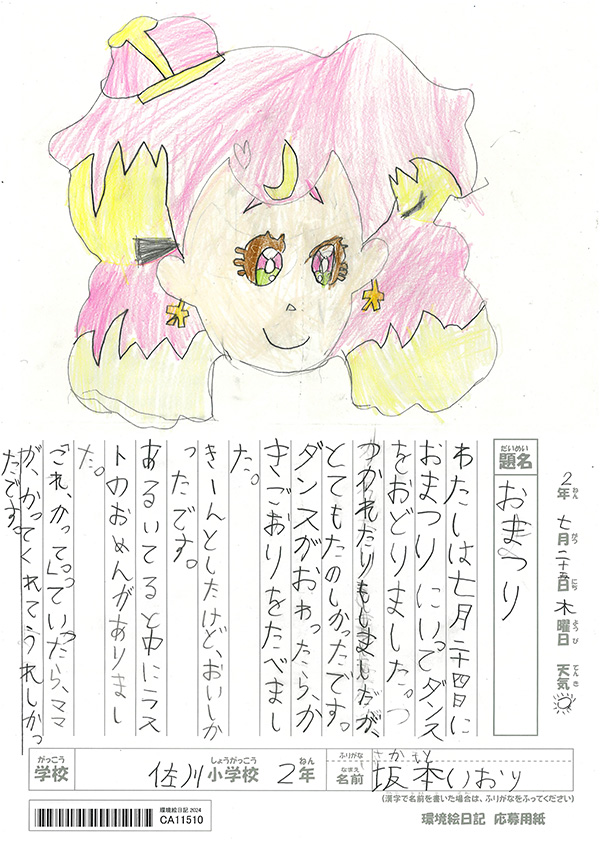 2年 七月 二十五日 木曜日 天気
ねん がつ にち ようび てんき
だいめい
題名 おまつり
わたしは七月二十四日に
おまつりにいってダンス
をおどりました。つ
かれたりもしましたが、
とてもたのしかったです。
ダンスがおわったら、か
きごおりをたべまし
た。
きーんとしたけど、おいしか
ったです。
あるいてると中にラス
トのおめんがありまし
た。
「これ、かって。」っていったら、ママ
が、かってくれてうれしかっ
たです。
がっこう しょうがっこう ねん
学校 佐川小学校 2年
ふりがな さかもと
なまえ
名前 坂本いおり
(漢字で名前を書いた場合は、ふりがなをふってください)
環境絵日記 2024
CA11510
環境絵日記 応募用紙